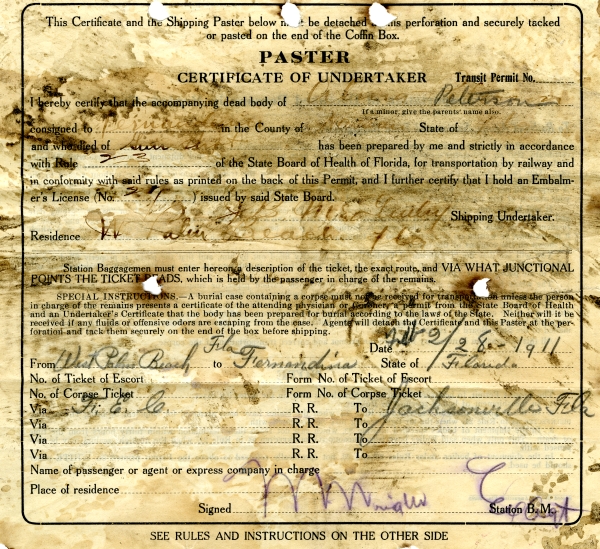 This Certificate and the Shipping Paster below must be detached at this perforation and securely tacked
or pasted on the end of the Coffin Box.
PASTER
CERTIFICATE OF UNDERTAKER Transit Permit No.
I hereby certify that the accompanying dead body of Peterson
If a minor, give the parents' name also.
consigned to in the County of State of
and who died of has been prepared by me and strictly in accordance
with Rule of the State Board of Health of Florida, for transportation by railway and
in conformity with said rules as printed on the back of this Permit, and I further certify that I hold an Embalm-
er's License (No. ) issued by said State Board.
Shipping Undertaker.
Residence W Palm
Station Baggagemen must enter hereon a description of the ticket, the exact route, and VIA WHAT JUNCTIONAL
POINTS THE TICKET READS, which is held by the passenger in charge of the remains.
SPECIAL INSTRUCTIONS.—A burial case containing a corpse must not be received for transportation unless the person
in charge of the remains presents a certificate of the attending physician or Coroner, a permit from the State Board of Health
and an Undertaker's Certificate that the body has been prepared for burial according to the laws of the State. Neither will it be
received if any fluids or offensive odors are escaping from the case. Agents will detach the Certificate and this Paster at the per-
foration and tack them securely on the end of the box before shipping.
Date 2/28-1911
From West Palm Beach Fla to Fernandina State of Florida
No. of Ticket of Escort Form No. of Ticket of Escort
No. of Corpse Ticket Form No. of Corpse Ticket
Via F. E. C. R. R. To Jacksonville Fla
Via R. R. To
Via R. R. To
Via R. R. To
Name of passenger or agent or express company in charge
Place of residence
Signed Station B. M.
SEE RULES AND INSTRUCTIONS ON THE OTHER SIDE